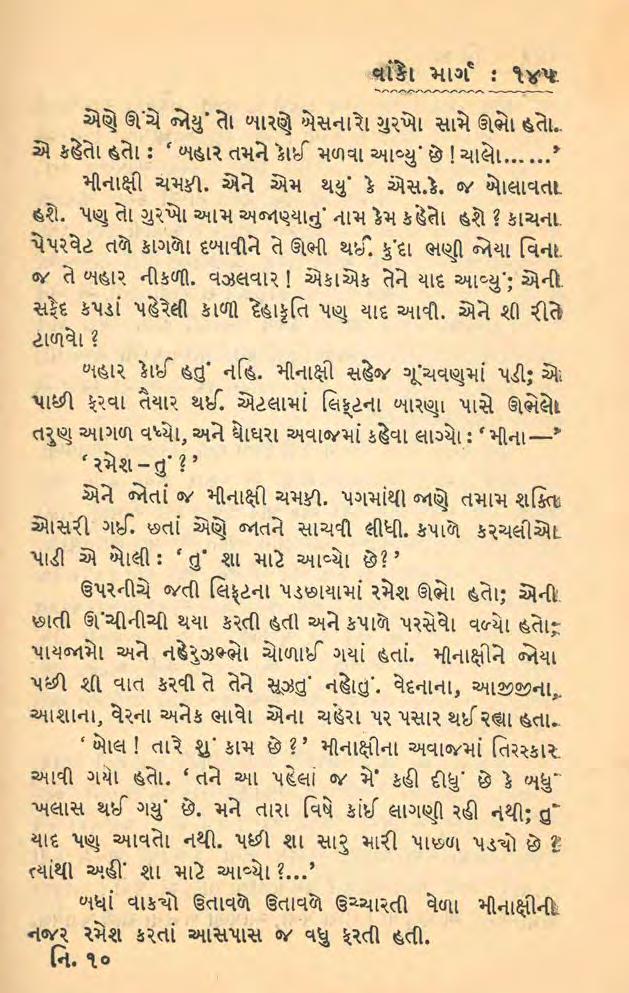 વાંકો માર્ગ : ૧૪૫
એણે ઊંચે જોયું તો બારણે બેસનારો ગુરખો સામે ઊભો હતો.
એ કહેતો હતો : ‘ બહાર તમને કોઈ મળવા આવ્યું છે ! ચાલો......’
મીનાક્ષી ચમકી. એને એમ થયું કે એસ.કે. જ બોલાવતા
હશે. પણ તો ગુરખો આમ અજાણ્યાનું નામ કેમ કહેતો હશે ? કાચના
પેપરવેટ તળે કાગળો દબાવીને તે ઊભી થઈ. કુંદા ભણી જોયા વિના
જ તે બહાર નીકળી. વઝલવાર ! એકાએક તેને યાદ આવ્યું; એની
સફેદ કપડાં પહેરેલી કાળી દેહાકૃતિ પણ યાદ આવી. એને શી રીતે
ટાળવો ?
બહાર કોઈ હતું નહિ. મીનાક્ષી સહેજ ગૂંચવણમાં પડી; એ
પાછી ફરવા તૈયાર થઈ. એટલામાં લિફ્ટના બારણા પાસે ઊભેલો
તરુણ આગળ વધ્યો, અને ઘોઘરા અવાજમાં કહેવા લાગ્યો : ‘ મીના—’
‘ રમેશ – તું ? ’
એને જોતાં જ મીનાક્ષી ચમકી. પગમાંથી જાણે તમામ શક્તિ
ઓસરી ગઈ. છતાં એણે જાતને સાચવી લીધી. કપાળે કરચલીઓ
પાડી એ બોલી : ‘ તું શા માટે આવ્યો છે?’
ઉપરનીચે જતી લિફ્ટના પડછાયામાં રમેશ ઊભો હતો; એની
છાતી ઊંચીનીચી થયા કરતી હતી અને કપાળે પરસેવો વળ્યો હતો;
પાયજામો અને નહેરુઝભ્ભો ચોળાઈ ગયાં હતાં. મીનાક્ષીને જોયા
પછી શી વાત કરવી તે તેને સૂઝતું નહોતું. વેદનાના, આજીજીના,
આશાના, વેરના અનેક ભાવો એના ચહેરા પર પસાર થઈ રહ્યા હતા.
‘ બોલ ! તારે શું કામ છે ? ’ મીનાક્ષીના અવાજમાં તિરસ્કાર
આવી ગયો હતો. ‘ તને આ પહેલાં જ મેં કહી દીધું છે કે બધું
ખલાસ થઈ ગયું છે. મને તારા વિષે કાંઈ લાગણી રહી નથી; તું
યાદ પણ આવતો નથી. પછી શા સારુ મારી પાછળ પડ્યો છે ?
ત્યાંથી અહીં શા માટે આવ્યો ?...’
બધાં વાક્યો ઉતાવળે ઉતાવળે ઉચ્ચારતી વેળા મીનાક્ષીની
નજર રમેશ કરતાં આસપાસ જ વધુ ફરતી હતી.
નિ. ૧૦